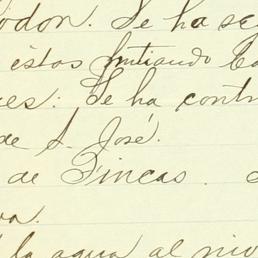 odon. Se ha se
estos
es: Se ha contr
de S. José.
de Fincas.
va.
la agua al niv